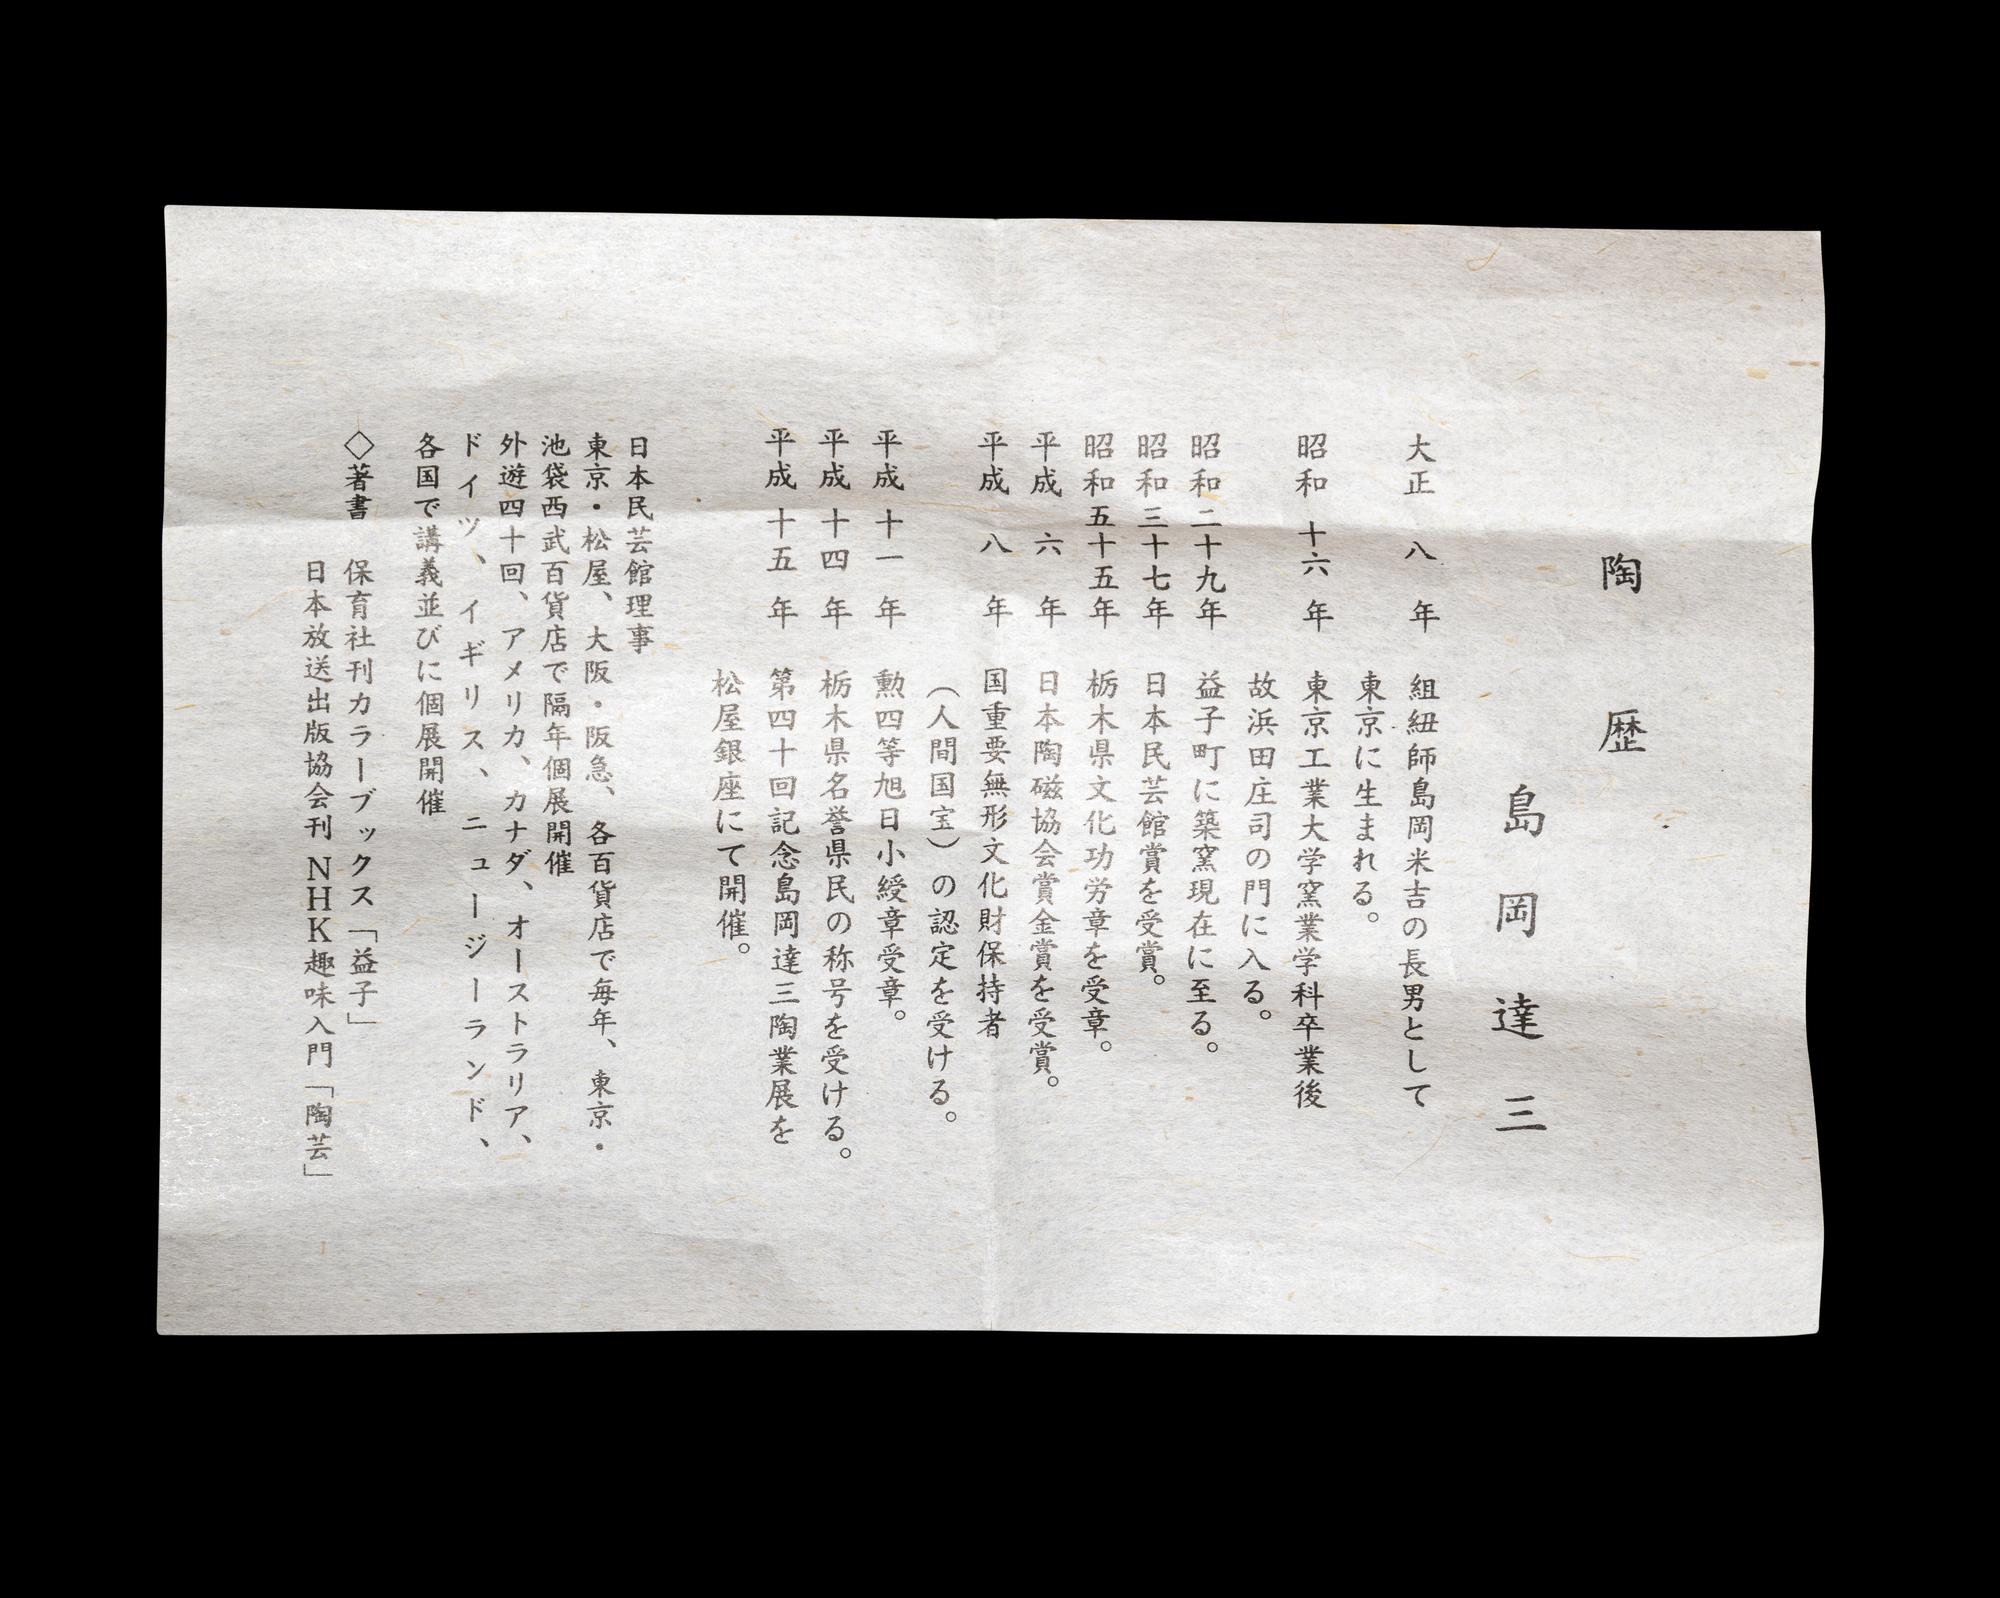 陶歴
島岡達三
大正八年 組紐師島岡米吉の長男として
東京に生まれる。
昭和十六年 東京工業大学窯業学科卒業後
故浜田庄司の門に入る。
昭和二十九年 益子町に築窯現在に至る。
昭和三十七年 日本民芸館賞を受賞。
昭和五十五年 栃木県文化功労章を受章。
平成六年 日本陶磁協会賞金賞を受賞。
平成八年 国重要無形文化財保持者
（人間国宝）の認定を受ける。
平成十一年 勲四等旭日小綬章受章。
平成十四年 栃木県名誉県民の称号を受ける。
平成十五年 第四十回記念島岡達三陶業展を
松屋銀座にて開催。
日本民芸館理事
東京・松屋、大阪・阪急、各百貨店で毎年、東京・
池袋西武百貨店で隔年個展開催
外遊四十回、アメリカ、カナダ、オーストラリア、
ドイツ、イギリス、ニュージーランド、
各国で講義並びに個展開催
◇著書 保育社刊カラーブックス「益子」
日本放送出版協会刊NHK趣味入門「陶芸」